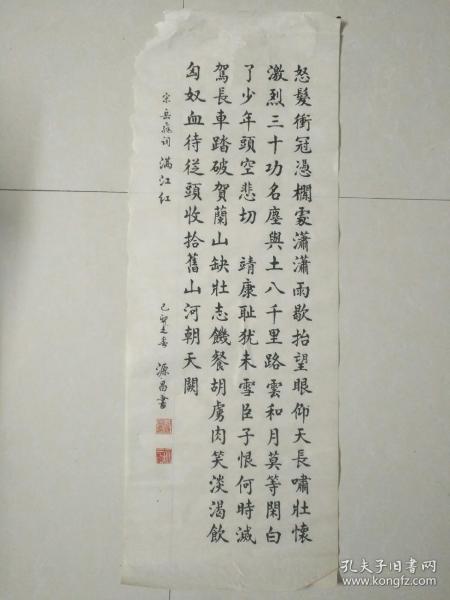 怒髮衝冠憑欄處瀟瀟雨歇抬望眼仰天長嘯壯懷
激烈三十功名塵與土八千里路雲和月莫等閑白
了少年頭空悲切 靖康耻犹未雪臣子恨何時滅
駕長車踏破賀蘭山缺壯志饑餐胡虜肉笑淡渴飲
匈奴血待從頭收拾舊山河朝天闕
宋岳飛词 满江红
己卯之春 源昌書
孔夫子旧书网
www.kongfz.com